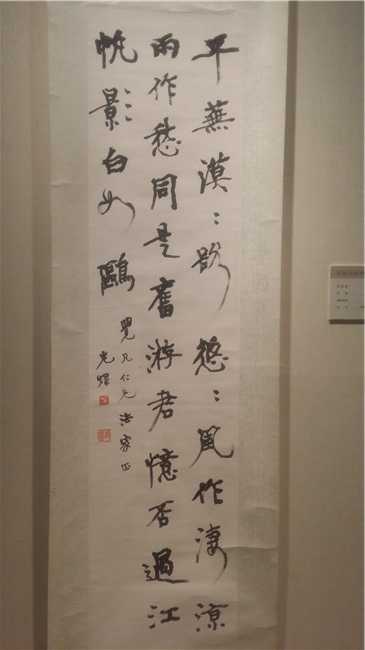 平蕪漠〻路悠〻風作淒涼
雨作愁同是舊游君憶否過江
帆影白如鷗
覺凡仁兄法家正
光燿